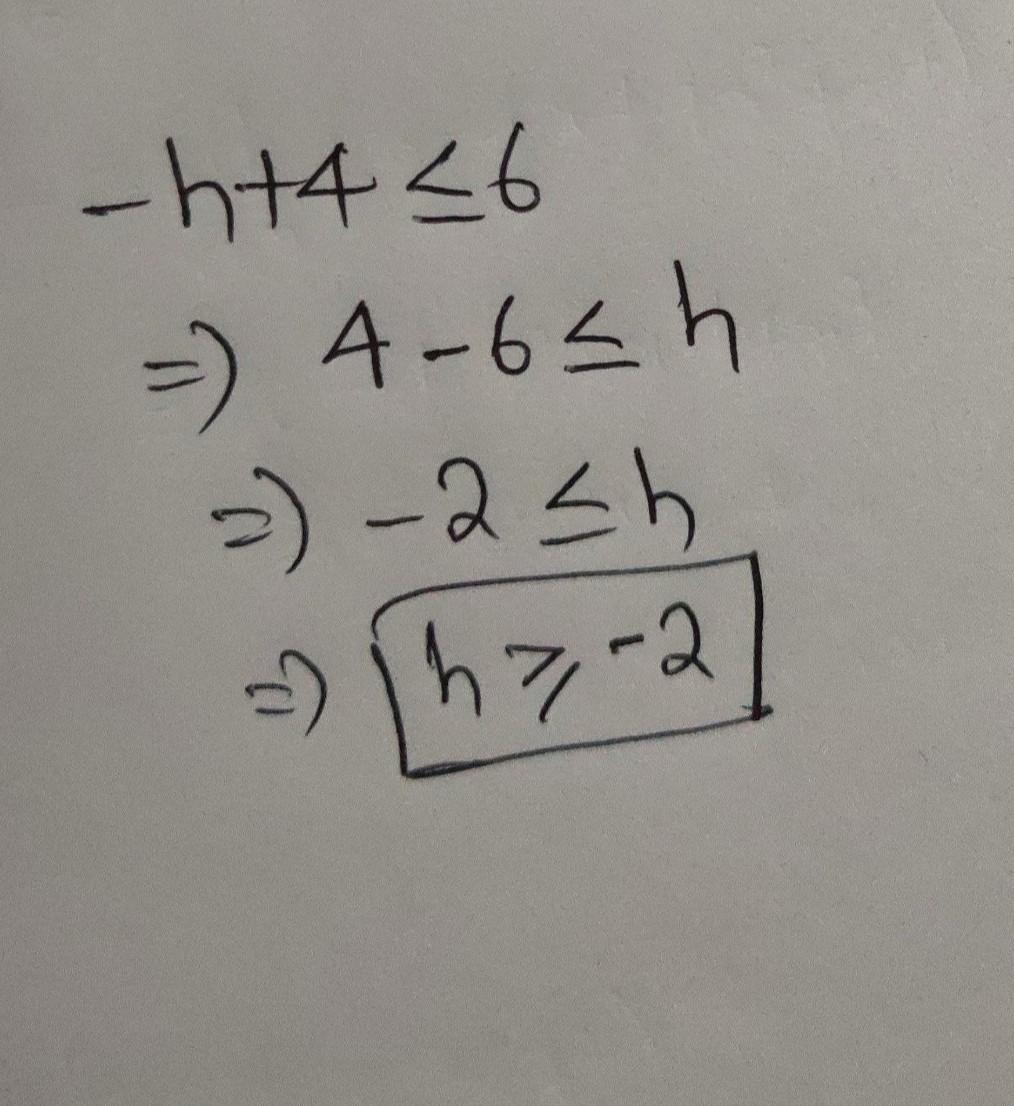 -h+4 ≤ 6
⇒ 4-6 ≤ h
⇒ -2 ≤ h
⇒ h ⩾ -2